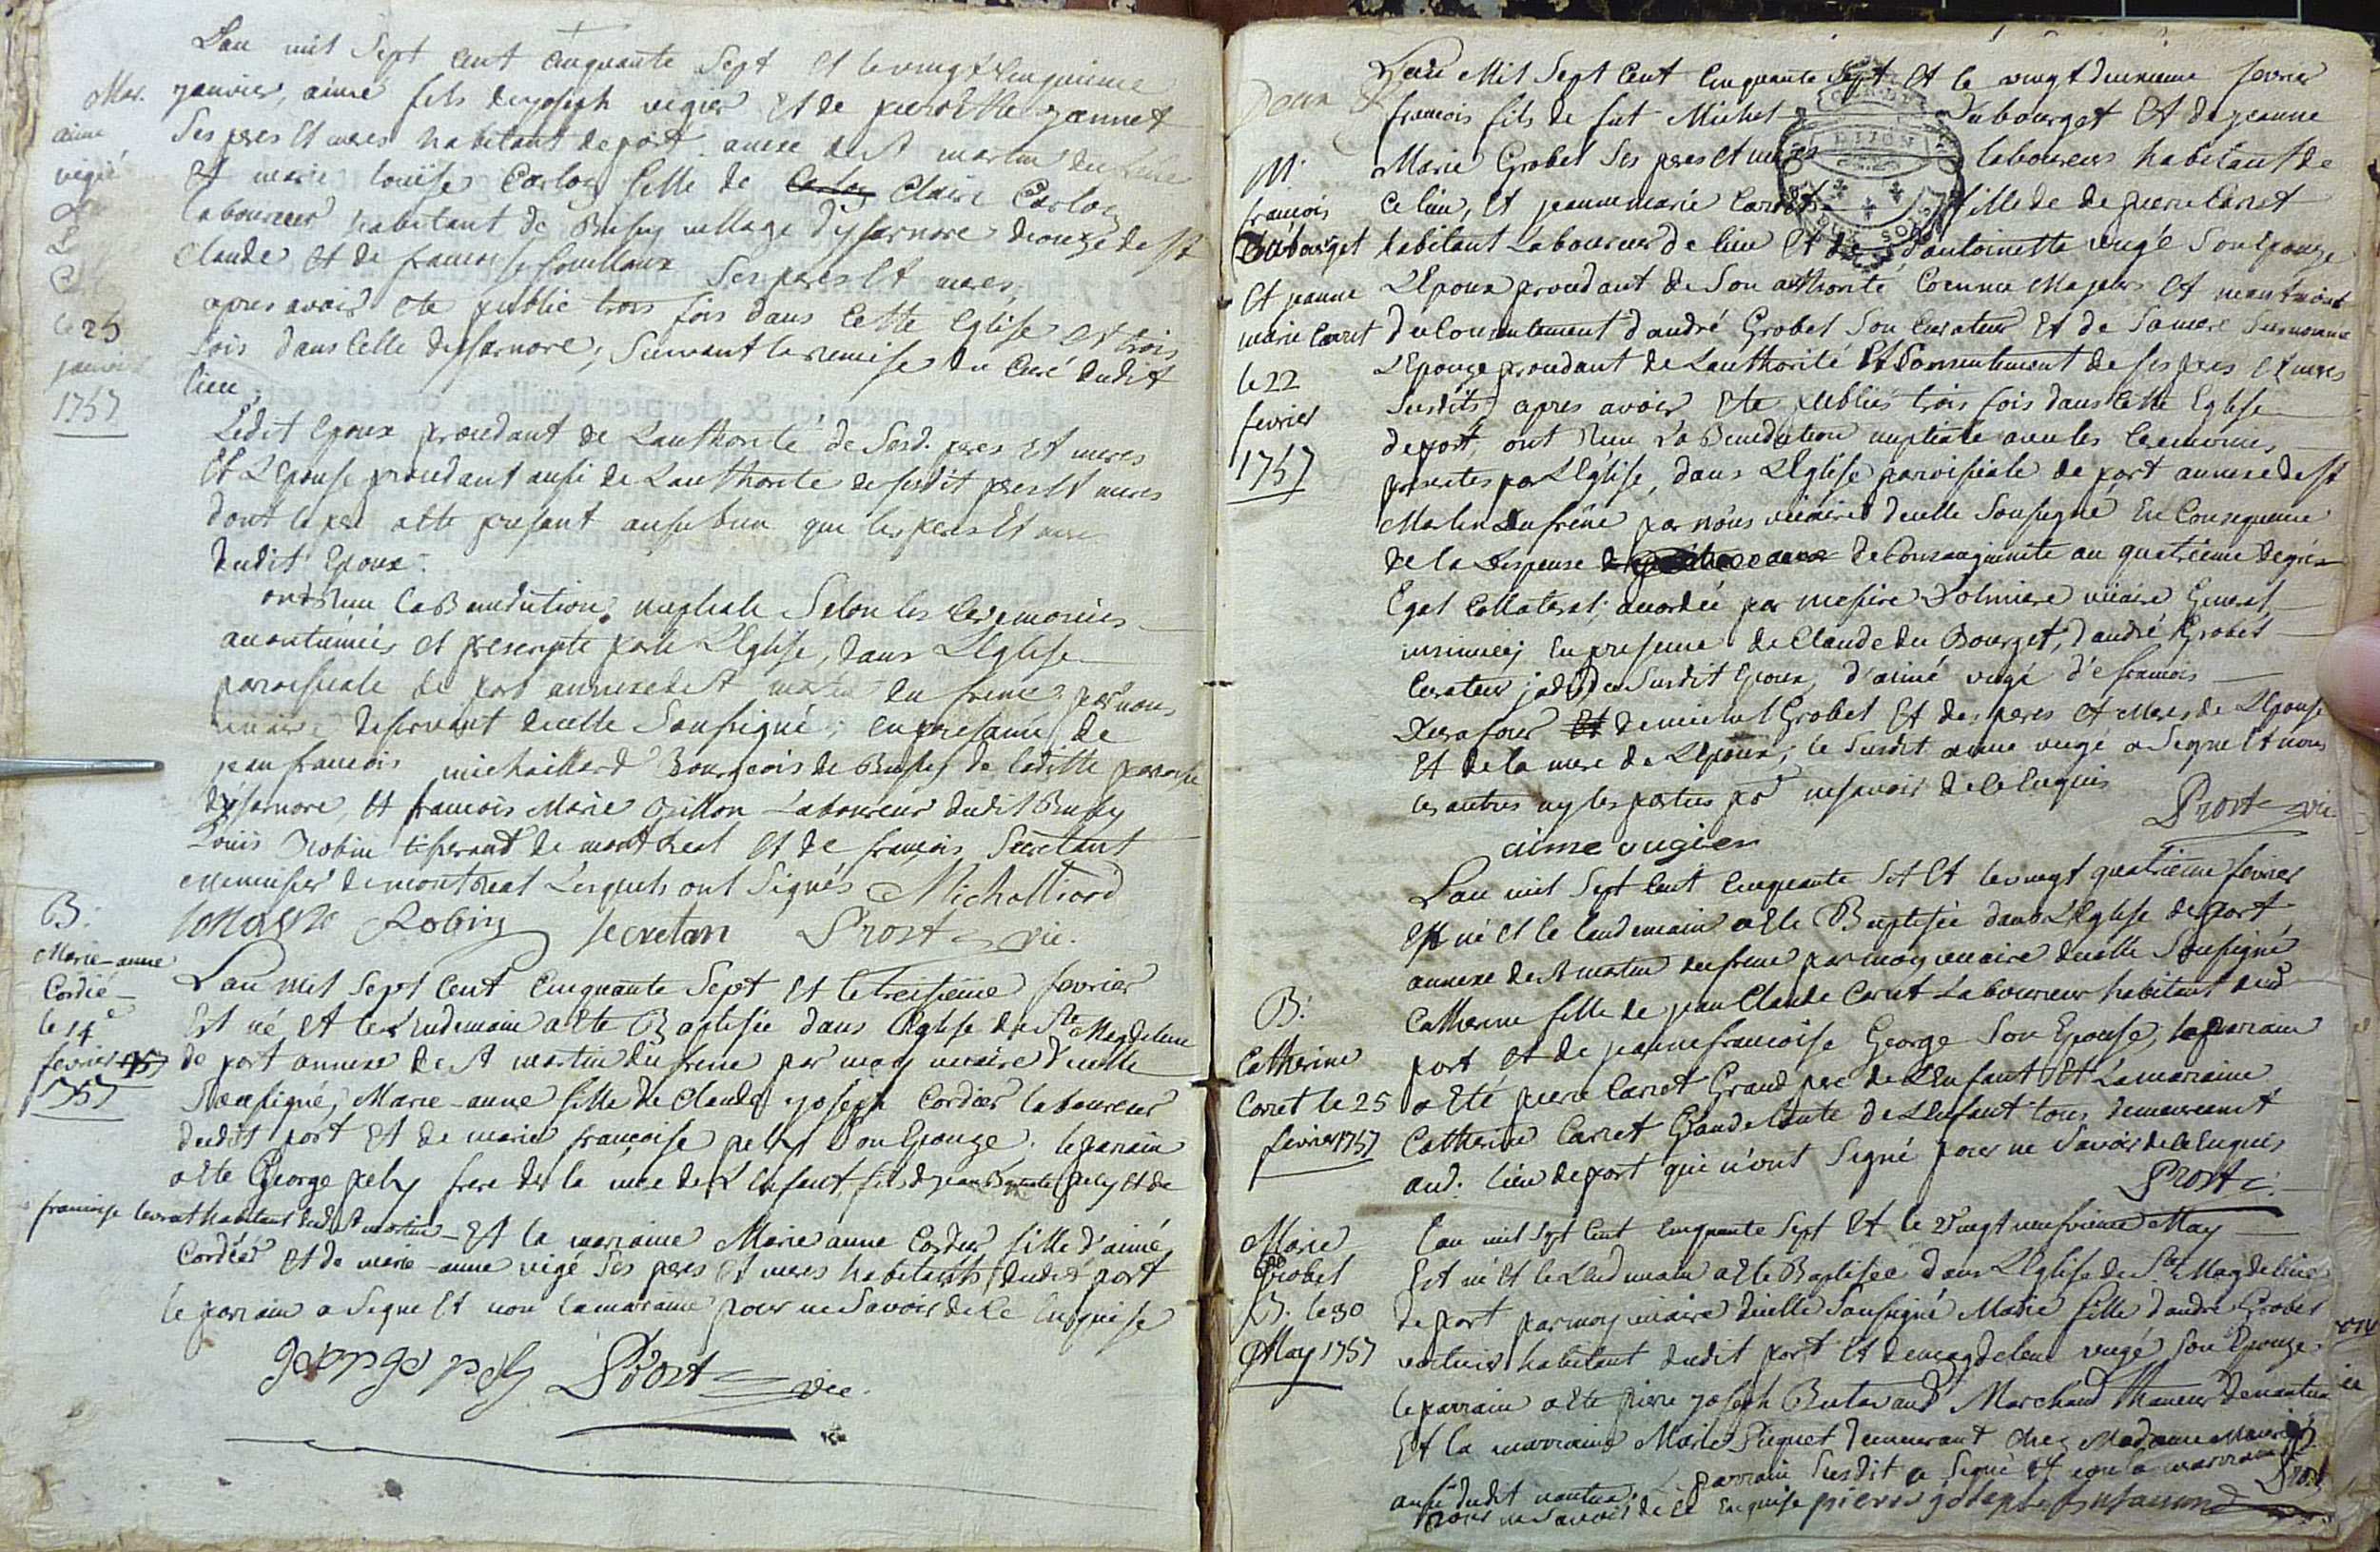 L'an mil Sept Cent Cinquante Sept et le vingt cinquieme
Mar.
janvier, aimé fils de joseph vegier Et de pierrette jannet
aimé
Ses peres Et meres habitant de port annexe de St martin du frêne
vegié
Et marie louise Carlod fille de Claire Carlod
laboureur habitant de Bussy village d'ysarnore dioceze de St
Claude Et de francoise Ses peres Et meres,
apres avoir ete publié trois fois dans Cette Eglise Et trois
fois dans Celle dysarnore, Suivant la remise du Curé dudit
lieu,
le 25
janvier
1757
Ledit Epoux procedant de Lauthorité de Sesd. peres Et meres
Et L'Epouse procedant aussi de Lauthorité de sesdit peres Et meres
dont le pere a eté present aussi bien que les peres Et mere
dudit Epoux.
ont Reçu la Benediction nuptiale Selon les Ceremonies
acoutumées et prescripte par L'Eglise, dans L'Eglise
paroissiale de port annexe de St martin du frene par nous
vicaire desservant d'icelle Soussigné, en presance de
jean francois michaillard Bourgeois de Bussy de laditte paroisse
d'ysarnore, Et francois Marie Laboureur dudit Bussy
Louis Robin tisserand de montreal Et de françois Secretant
Menuisier de montreal Lesquels ont Signés Michalliard
Robin secretan Prost vic.
B.
Marie-anne
Cordié
le 14e
fevrier
1757
L'an mil Sept Cent Cinquante Sept Et le treisieme fevrier
Est né Et le Lendemain a eté Baptisée dans l'Eglise de Ste Magdeleine
de port annexe de St martin du frene par moy vicaire d'icelle
Soussigné, Marie-anne fille de Claude joseph Cordier laboureur
dudit port Et de marie françoise pely Son Epouze. le parain
a eté George pely frere de la mere de L'Enfant, fils de jean Baptiste pely Et de
francoise levrat habitant dud. St martin - Et la maraine Marie anne Cordier fille d'aimé
Cordier Et de marie-anne vegé Ses peres Et meres habitants dudit port
le parrain a Signé Et non la maraine pour ne Savoir de Ce Enquise
george pely Prost vic.
L'an Mil Sept Cent Cinquante Sept Et le vingt deuxieme fevrier
francois fils de fut Michel Dubourget Et de jeanne
Marie Grobel Ses peres Et meres laboureur habitant de
Ce lieu, Et jeanne marie Carret fille de de pierre Carret
habitant Laboureur de lieu Et d'antoinette vegé Son Epouze
M.
francois
Dubourget
Et jeanne
marie Carret
le 22
fevrier
1757
L'Epoux procedant de Son authorité Comme Majeur Et neantmoint
du Consentement d'andré Grobel Son Curateur Et de Samere Susnommé
L'Epouze procedant de Lauthorité Et Consentement de ses peres Et meres
Susdits, apres avoir Eté publiés trois fois dans Cette Eglise
de port, ont Reçu La Benediction nuptiale avec les Ceremonies
prescrites par L'Eglise, dans L'Eglise paroissiale de port annexe de St
Martin Du frêne par nous vicaire d'icelle Soussigné En Consequence
de la Dispense de Consanguinité au quatrieme degré
Egal Collateral, accordée par messire Dolmiere vicaire General
insinuéé, En presence de Claude du Bourget, d'andré Grobel
Curateur jadis du Susdit Epoux, d'aimé vegé d'e francois
Et de michel Grobel Et des peres Et Meres de L'Epouse
Et de la mere de L'Epoux, le Susdit aimé vegé a Signé Et nous
les autres ny les parties pr ne savoir de Ce Enquis
Prost vic.
aime vugier
L'an mil Sept Cent Cinquante Set Et le vingt quatrieme fevrier
Est né et le lendemain a eté Baptisée dans L'Eglise de port
annexe de St martin du frene par moy vicaire d'icelle Soussigné
B.
Catherine
Carret le 25
fevrier 1757
Catherine fille de jean Claude Carret Laboureur habitant dud.
port Et de jeanne francoise George Son Epouse, le parrain
a eté pierre Carret Grand pere de L'Enfant Et La maraine
Catherine Carret Grande tante de L'Enfant tous demeurant
aud. lieu de port qui n'ont Signé pour ne Savoir de Ce Enquis
Prost
Marie
Grobel
B. le 30
May 1757
L'an mil Sept Cent Cinquante Sept Et le vingt neufvieme May
Est né Et le Lendemain a eté Baptisée dans L'Eglise de Ste Magdeleine
de port par moy vicaire d'icelle Soussigné Marie fille d'andré Grobel
habitant dudit port Et de magdelene vegé Son Epouze
le parrain a eté pierre joseph Butavand Marchand Taneur de nantua
Et la marraine Marie Piquet demeurant chez Madame
aussi dudit nantua. Le parrain Susdit a Signé Et non la marraine
pour ne Savoir de Ce Enquise pierre joseph butavand Prost